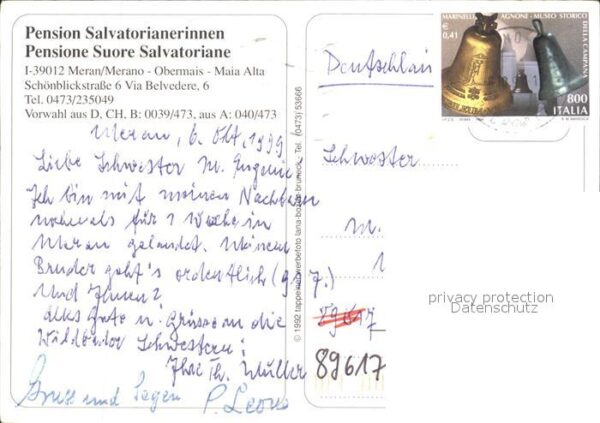 Pension Salvatorianerinnen
Pensione Suore Salvatoriane
I-39012 Meran/Merano - Obermais - Maia Alta
Schönblickstraße 6 Via Belvedere, 6
Tel. 0473/235049
Vorwahl aus D, CH, B: 0039/473, aus A: 040/473
Meran, 6. Okt. 1999
Liebe Schwester M. Eugenie!
Ich bin mit meinen Nachbarn
nochmals für 1 Woche in
Meran gelandet. Meinem
Bruder geht's ordentlich
Und Ihnen?
Alles Gute u. Grüsse an die
Schwestern!
Ihre Th. Müller
Gruss und Segen P. Leone
© 1992 tappeiner werbefoto lana-bozen Tel. (0473) 53666
Deutschland
Schwester
M.
89617
MARINELLI AGNONE - MUSEO STORICO DELLA CAMPANA
€ 0,41
800
ITALIA
privacy protection
Datenschutz